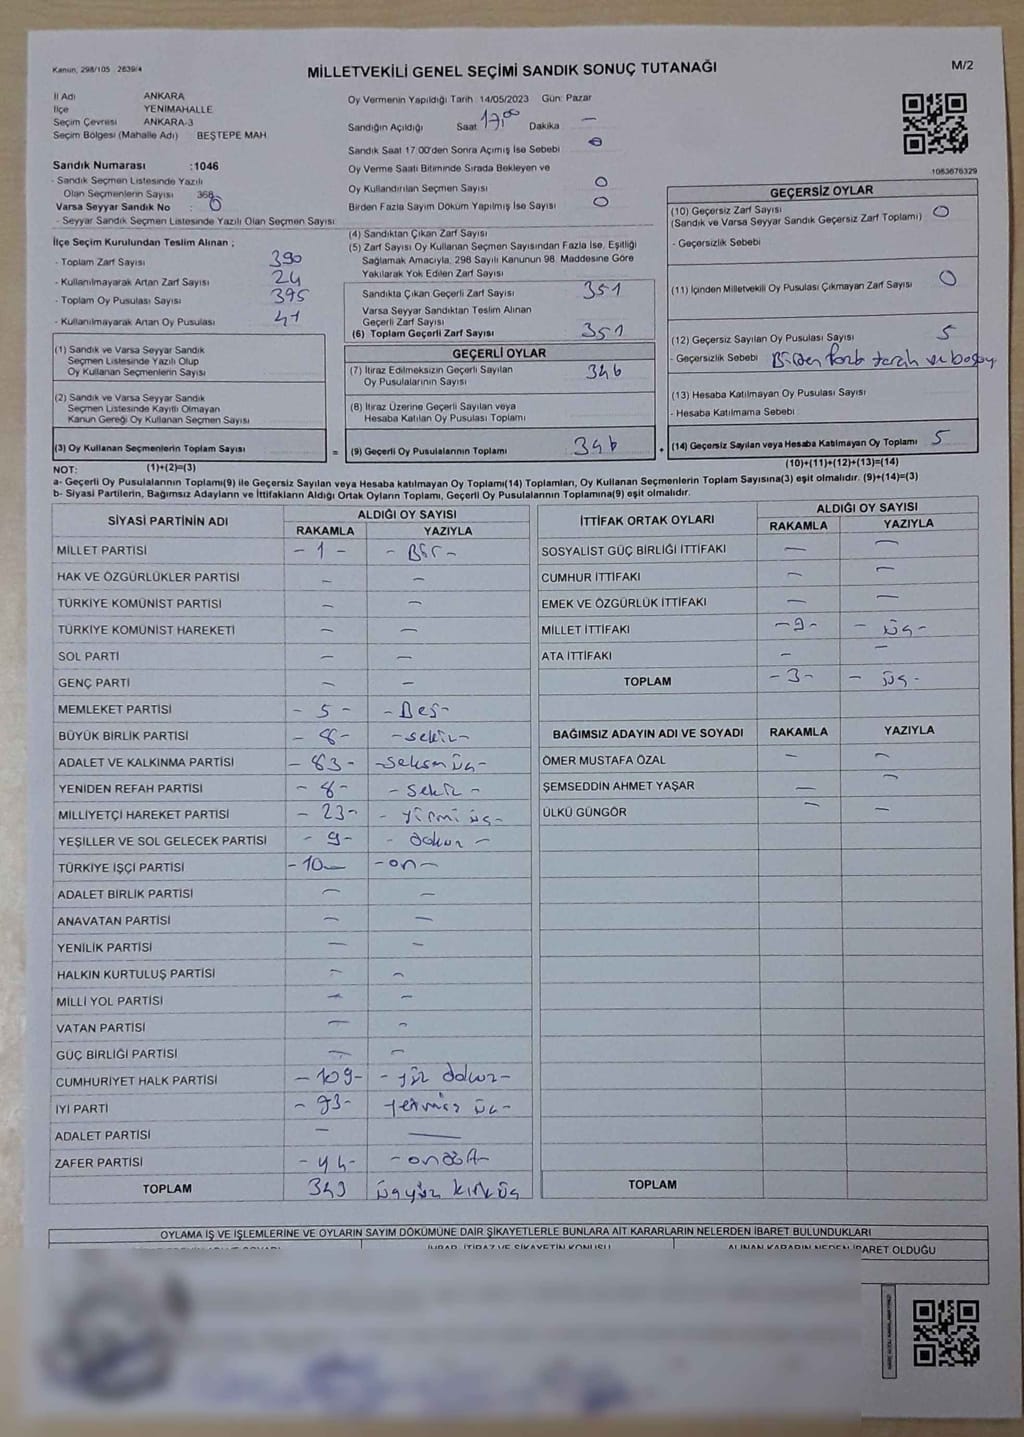 Kanun: 298/105 2839/4
MİLLETVEKİLİ GENEL SEÇİMİ SANDIK SONUÇ TUTANAĞI
M/2
İl Adı ANKARA
İlçe YENİMAHALLE
Seçim Çevresi ANKARA-3
Seçim Bölgesi (Mahalle Adı) BEŞTEPE MAH
Sandık Numarası :1046
- Sandık Seçmen Listesinde Yazılı
Olan Seçmenlerin Sayısı 368
Varsa Seyyar Sandık No : 0
- Seyyar Sandık Seçmen Listesinde Yazılı Olan Seçmen Sayısı:
İlçe Seçim Kurulundan Teslim Alınan ;
- Toplam Zarf Sayısı 390
- Kullanılmayarak Artan Zarf Sayısı 24
- Toplam Oy Pusulası Sayısı 395
- Kullanılmayarak Artan Oy Pusulası 41
(1) Sandık ve Varsa Seyyar Sandık
Seçmen Listesinde Yazılı Olup
Oy Kullanan Seçmenlerin Sayısı
(2) Sandık ve Varsa Seyyar Sandık
Seçmen Listesinde Kayıtlı Olmayan
Kanun Gereği Oy Kullanan Seçmen Sayısı
(3) Oy Kullanan Seçmenlerin Toplam Sayısı
Oy Vermenin Yapıldığı Tarih 14/05/2023 Gün: Pazar
Sandığın Açıldığı Saat 17,00 Dakika —
Sandık Saat 17:00'den Sonra Açımış İse Sebebi
Oy Verme Saati Bitiminde Sırada Bekleyen ve
Oy Kullandırılan Seçmen Sayısı 0
Birden Fazla Sayım Döküm Yapılmış İse Sayısı 0
(4) Sandıktan Çıkan Zarf Sayısı
(5) Zarf Sayısı Oy Kullanan Seçmen Sayısından Fazla İse, Eşitliği
Sağlamak Amacıyla, 298 Sayılı Kanunun 98. Maddesine Göre
Yakılarak Yok Edilen Zarf Sayısı
Sandıkta Çıkan Geçerli Zarf Sayısı 351
Varsa Seyyar Sandıktan Teslim Alınan
Geçerli Zarf Sayısı
(6) Toplam Geçerli Zarf Sayısı 351
GEÇERLİ OYLAR
(7) İtiraz Edilmeksizin Geçerli Sayılan
Oy Pusulalarının Sayısı 346
(8) İtiraz Üzerine Geçerli Sayılan veya
Hesaba Katılan Oy Pusulası Toplamı
= (9) Geçerli Oy Pusulalarının Toplamı 346
1083676329
GEÇERSİZ OYLAR
(10) Geçersiz Zarf Sayısı 0
(Sandık ve Varsa Seyyar Sandık Geçersiz Zarf Toplamı)
- Geçersizlik Sebebi
(11) İçinden Milletvekili Oy Pusulası Çıkmayan Zarf Sayısı 0
(12) Geçersiz Sayılan Oy Pusulası Sayısı 5
- Geçersizlik Sebebi Birden fazla tercih ve boş oy
(13) Hesaba Katılmayan Oy Pusulası Sayısı
- Hesaba Katılmama Sebebi
+ (14) Geçersiz Sayılan veya Hesaba Katılmayan Oy Toplamı 5
NOT: (1)+(2)=(3)
(10)+(11)+(12)+(13)=(14)
a- Geçerli Oy Pusulalarının Toplamı(9) ile Geçersiz Sayılan veya Hesaba katılmayan Oy Toplamı(14) Toplamları, Oy Kullanan Seçmenlerin Toplam Sayısına(3) eşit olmalıdır. (9)+(14)=(3)
b- Siyasi Partilerin, Bağımsız Adayların ve İttifakların Aldığı Ortak Oyların Toplamı, Geçerli Oy Pusulalarının Toplamına(9) eşit olmalıdır.
SİYASİ PARTİNİN ADI ALDIĞI OY SAYISI
RAKAMLA YAZIYLA
MİLLET PARTİSİ - 1 - - Bir -
HAK VE ÖZGÜRLÜKLER PARTİSİ — —
TÜRKİYE KOMÜNİST PARTİSİ — —
TÜRKİYE KOMÜNİST HAREKETİ — —
SOL PARTİ — —
GENÇ PARTİ — —
MEMLEKET PARTİSİ - 5 - - Beş -
BÜYÜK BİRLİK PARTİSİ - 8 - - sekiz -
ADALET VE KALKINMA PARTİSİ - 83 - - seksen üç -
YENİDEN REFAH PARTİSİ - 8 - - sekiz -
MİLLİYETÇİ HAREKET PARTİSİ - 23 - - yirmi üç -
YEŞİLLER VE SOL GELECEK PARTİSİ - 9 - - dokuz -
TÜRKİYE İŞÇİ PARTİSİ - 10 - - on -
ADALET BİRLİK PARTİSİ — —
ANAVATAN PARTİSİ — —
YENİLİK PARTİSİ — —
HALKIN KURTULUŞ PARTİSİ — —
MİLLİ YOL PARTİSİ — —
VATAN PARTİSİ — —
GÜÇ BİRLİĞİ PARTİSİ — —
CUMHURİYET HALK PARTİSİ - 109 - - yüz dokuz -
İYİ PARTİ - 73 - yetmiş üç -
ADALET PARTİSİ — —
ZAFER PARTİSİ - 14 - - ondört -
TOPLAM 343 üçyüz kırküç
İTTİFAK ORTAK OYLARI ALDIĞI OY SAYISI
RAKAMLA YAZIYLA
SOSYALİST GÜÇ BİRLİĞİ İTTİFAKI — —
CUMHUR İTTİFAKI — —
EMEK VE ÖZGÜRLÜK İTTİFAKI — —
MİLLET İTTİFAKI - 3 - - üç -
ATA İTTİFAKI — —
TOPLAM - 3 - - üç -
BAĞIMSIZ ADAYIN ADI VE SOYADI RAKAMLA YAZIYLA
ÖMER MUSTAFA ÖZAL — —
ŞEMSEDDİN AHMET YAŞAR — —
ÜLKÜ GÜNGÖR — —
TOPLAM
OYLAMA İŞ VE İŞLEMLERİNE VE OYLARIN SAYIM DÖKÜMÜNE DAİR ŞİKAYETLERLE BUNLARA AİT KARARLARIN NELERDEN İBARET BULUNDUKLARI
İHBAR, İTİRAZ VE ŞİKAYETİN KONUSU ALINAN KARARIN NEDEN İBARET OLDUĞU